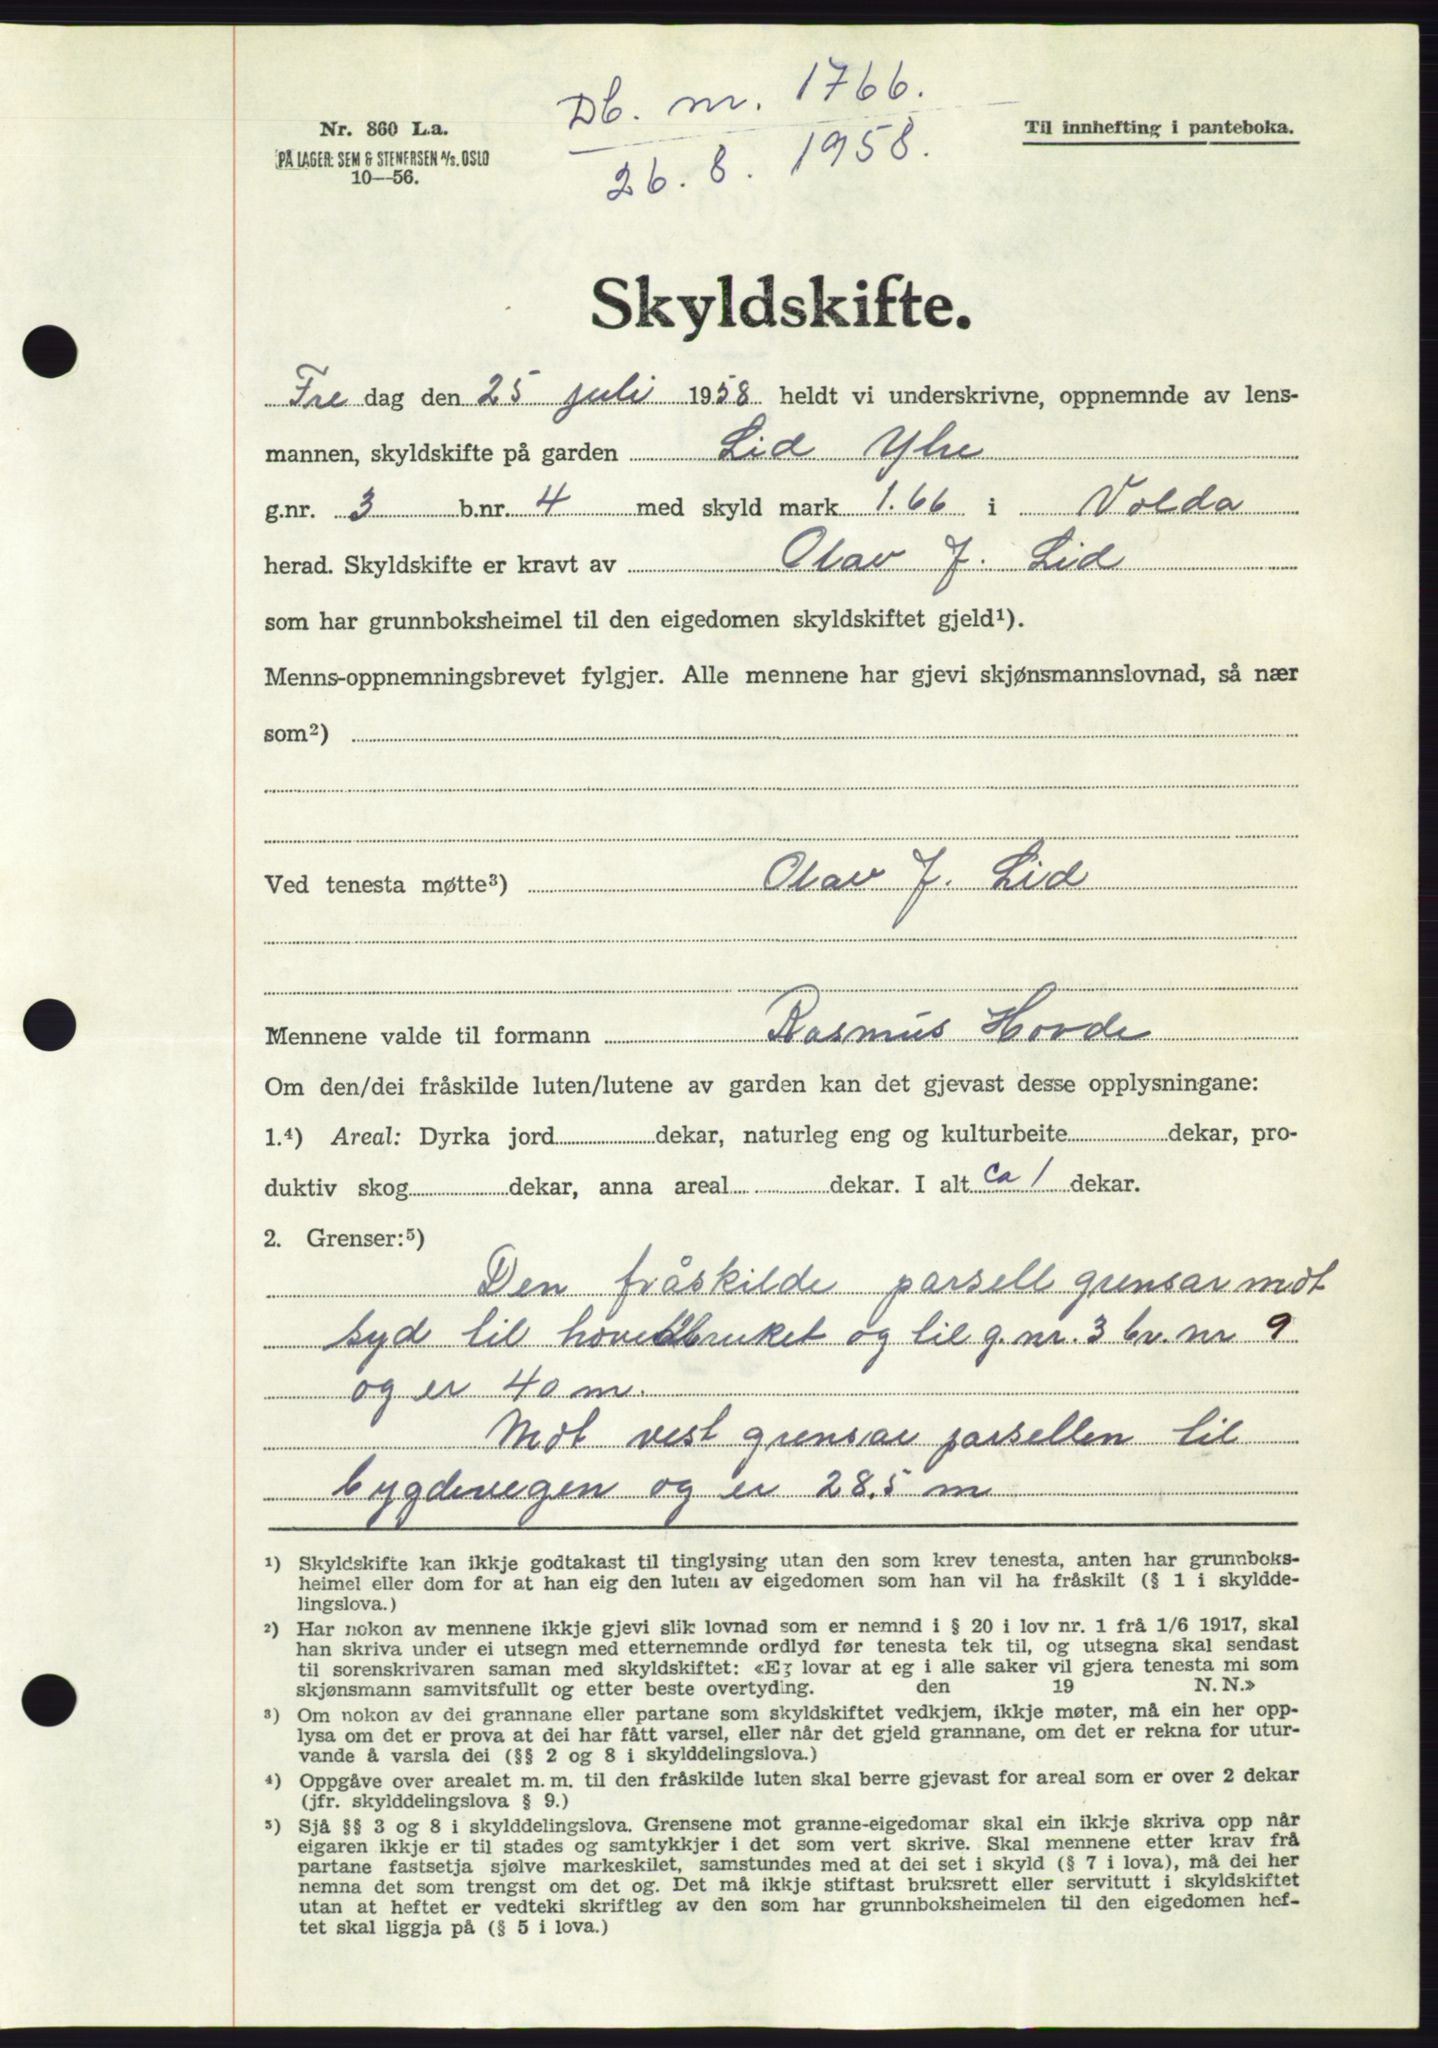 Nr. 860 L.a.
PÅ LAGER: SEM & STENERSEN A/S. OSLO
10—56.
Db. nr. 1766.
26. 8. 1958.
Til innhefting i panteboka.
Skyldskifte.
Fre dag den 25 juli 1958 heldt vi underskrivne, oppnemnde av lens-
mannen, skyldskifte på garden Lid Yhe
g.nr. 3 b.nr. 4 med skyld mark 1.66 i Volda
herad. Skyldskifte er kravt av Olav J. Lid
som har grunnboksheimel til den eigedomen skyldskiftet gjeld¹).
Menns-oppnemningsbrevet fylgjer. Alle mennene har gjevi skjønsmannslovnad, så nær
som²)
Ved tenesta møtte³) Olav J. Lid
Mennene valde til formann Rasmus Hovde
Om den/dei fråskilde luten/lutene av garden kan det gjevast desse opplysningane:
1.⁴) Areal: Dyrka jord dekar, naturleg eng og kulturbeite dekar, pro-
duktiv skog dekar, anna areal dekar. I alt ca 1 dekar.
2. Grenser:⁵)
Den fråskilde parsell grensar mot
syd til hovedbruket og til g.nr. 3 br. nr 9
og er 40 m.
Mot vest grensar parsellen til
bygdevegen og er 28.5 m
¹) Skyldskifte kan ikkje godtakast til tinglysing utan den som krev tenesta, anten har grunnboks-
heimel eller dom for at han eig den luten av eigedomen som han vil ha fråskilt (§ 1 i skyldde-
lingslova.)
²) Har nokon av mennene ikkje gjevi slik lovnad som er nemnd i § 20 i lov nr. 1 frå 1/6 1917, skal
han skriva under ei utsegn med etternemnde ordlyd før tenesta tek til, og utsegna skal sendast
til sorenskrivaren saman med skyldskiftet: «Eg lovar at eg i alle saker vil gjera tenesta mi som
skjønsmann samvitsfullt og etter beste overtyding. den 19 N. N.»
³) Om nokon av dei grannane eller partane som skyldskiftet vedkjem, ikkje møter, må ein her opp-
lysa om det er prova at dei har fått varsel, eller når det gjeld grannane, om det er rekna for utur-
vande å varsla dei (§§ 2 og 8 i skylddelingslova.)
⁴) Oppgåve over arealet m. m. til den fråskilde luten skal berre gjevast for areal som er over 2 dekar
(jfr. skylddelingslova § 9.)
⁵) Sjå §§ 3 og 8 i skylddelingslova. Grensene mot granne-eigedomar skal ein ikkje skriva opp når
eigaren ikkje er til stades og samtykkjer i det som vert skrive. Skal mennene etter krav frå
partane fastsetja sjølve markeskilet, samstundes med at dei set i skyld (§ 7 i lova), må dei her
nemna det som trengst om det og. Det må ikkje stiftast bruksrett eller servitutt i skyldskiftet
utan at heftet er vedteki skriftleg av den som har grunnboksheimelen til den eigedomen hef-
tet skal liggja på (§ 5 i lova.)